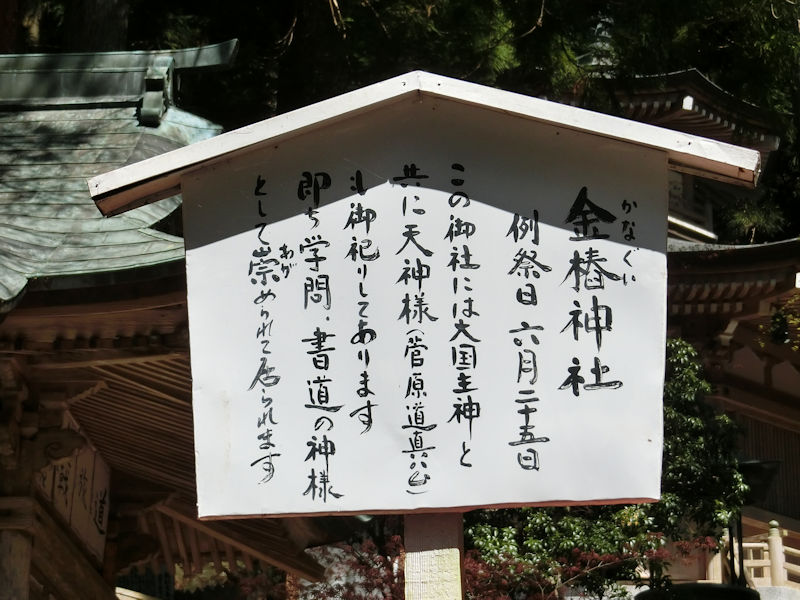 かなぐい
金樁神社
例祭日 六月二十五日
この御社には大国主神と
共に天神様(菅原道真公)
も御祀りしてあります
即ち学問・書道の神様
あが
として崇められて居られます